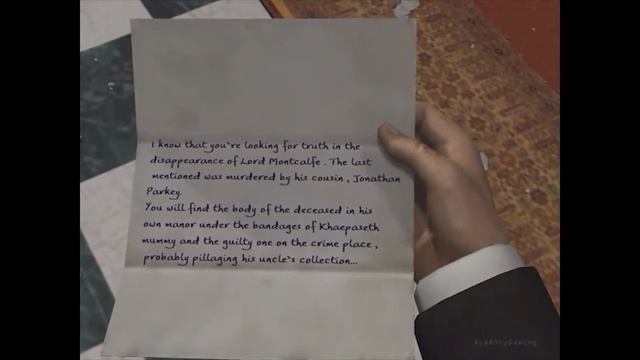 I know that you`re looking for truth in the
disappearance of Lord Montcalfe . The last
mentioned was murdered by his cousin , Jonathan
Parkey.
You will find the body of the deceased in his
own manor under the bandages of Khaepaseth
mummy and the guilty one on the crime place ,
probably pillaging his uncle`s collection...